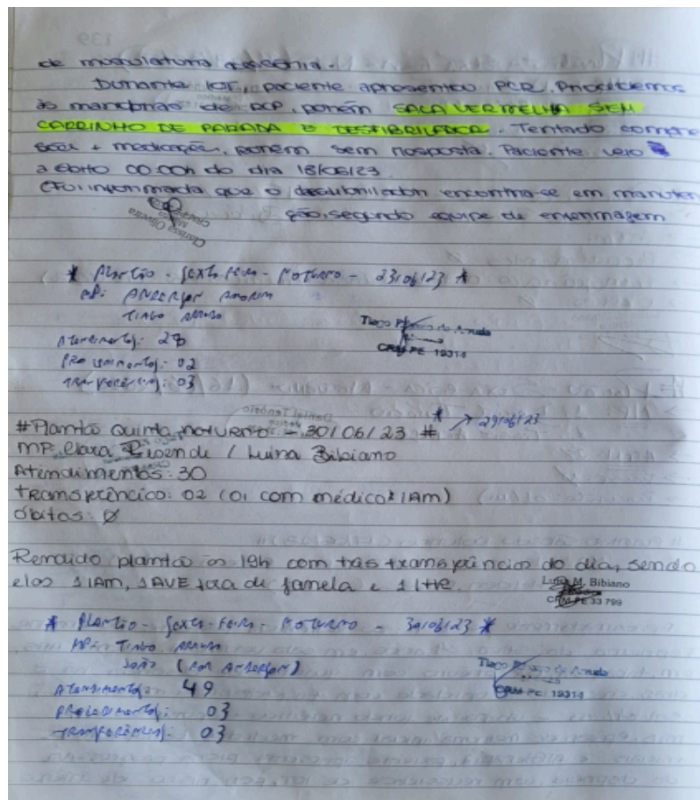 139
de musculatura acessória.
Durante IOT, paciente apresentou PCR. Procedemos
às manobras de RCP, porém SALA VERMELHA SEM
CARRINHO DE PARADA E DESFIBRILADOR. Tentado compre
sões + medicação, porém sem resposta. Paciente veio
a óbito 00:00h do dia 18/06/23
(Fui informada que o desfibrilador encontra-se em manuten
ção, segundo equipe de enfermagem
Clarissa Oliveira
* Plantão - Sexta-Feira - Noturno - 23/06/23 *
MP: ANDERSON AMORIM
TIAGO
Atendimentos: 28
Procedimentos: 02
Transferências: 03
CRM PE 19314
#Plantão quinta noturno - 30/06/23 #
* → 29/06/23
MP Clara Rezende / Luina Bibiano
Atendimentos: 30
Transferência: 02 (01 com médico IAM)
óbitos: Ø
Rendido plantão às 19h com três transferências do dia, sendo
elas 1 IAM, 1 AVE fora de janela e 1
M. Bibiano
CRM PE 33 799
* Plantão - Sexta-Feira - Noturno - 30/06/23 *
MP: TIAGO
JOÃO (POR ANDERSON)
Atendimentos: 49
Procedimentos: 03
Transferências: 03
CRM PE: 19314